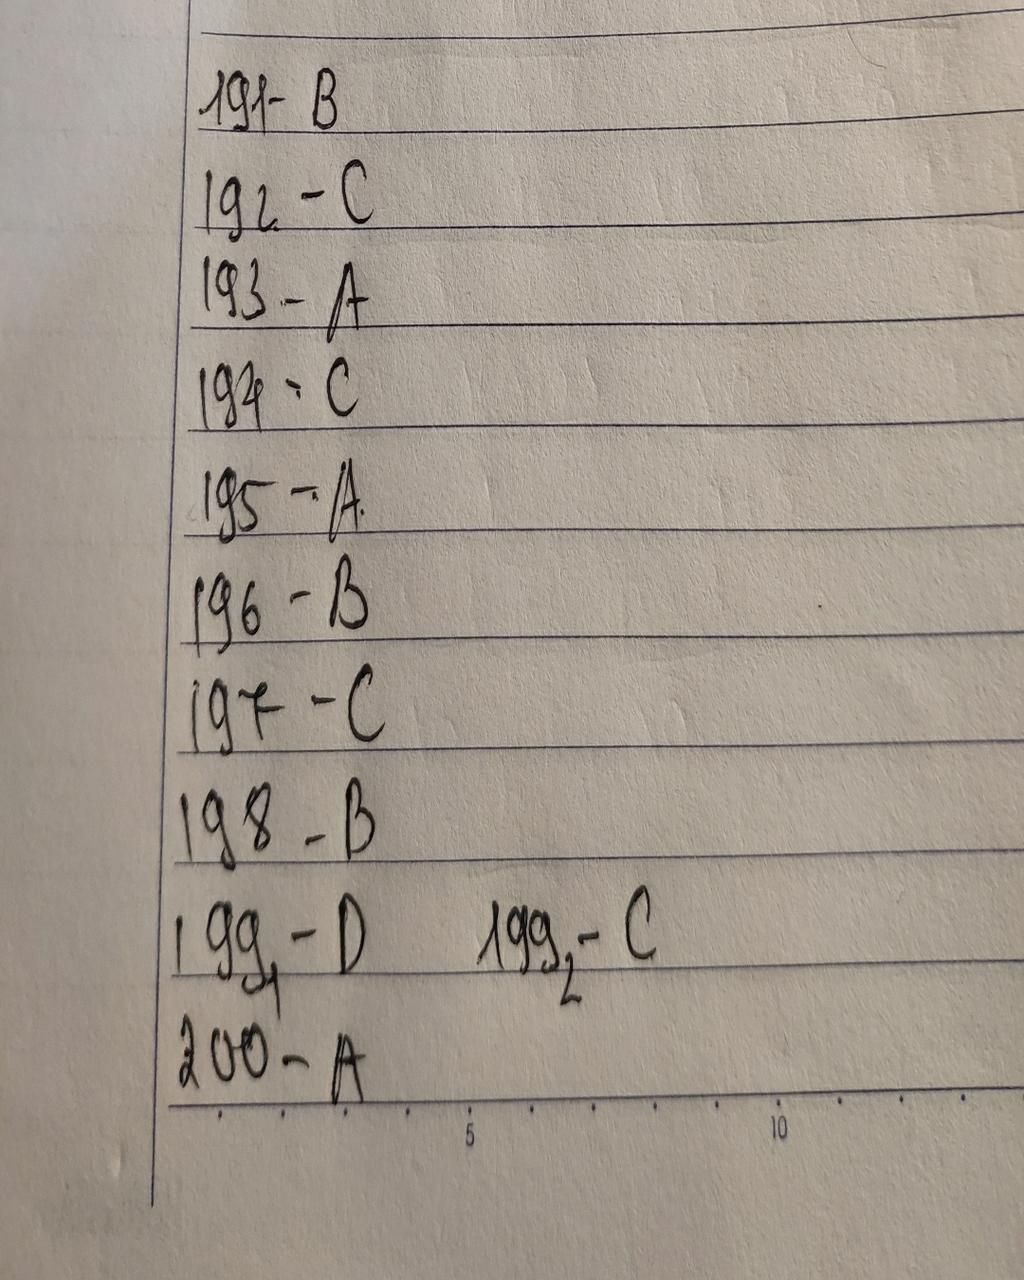 191- B
192 - C
193 - A
194 - C
195 - A.
196 - B
197 - C
198 - B
199₁ - D 199₂ - C
200 - A
5 10